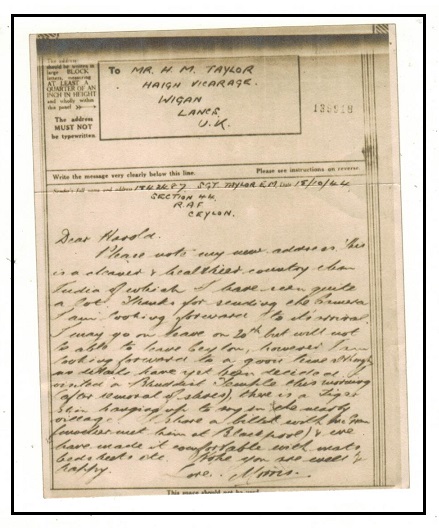 The address
should be written in
large BLOCK
letters, occupying
AT LEAST A
QUARTER OF AN
INCH IN HEIGHT
and wholly within
this panel
The address
MUST NOT
be typewritten.
To MR. H. M. TAYLOR
HAIGH VICARAGE.
WIGAN
LANCS
U.K.
Write the message very clearly below this line. Please see instructions on reverse.
Sender's full name and address 1842487 SGT TAYLOR E.M. Date 18/10/44
SECTION 44
R.A.F
CEYLON.
Dear Harold.
Please note my new address. This
is a cleaner & healthier country than
India of which I have seen quite
a lot. Thanks for sending the camera
I am looking forward to its arrival.
I may go on leave on 20th but will not
be able to leave Ceylon, however I am
looking forward to a good time though
no details have yet been decided. I
visited a Buddhist Temple this morning
(after removal of shoes), there is a Tiger
skin hanging up to dry in the nearby
village. I share a billet with
met him at Blackpool) & we
have made it comfortable with mats
bedsheets etc. Hope you are well &
happy.
Love.
This space should not be used.